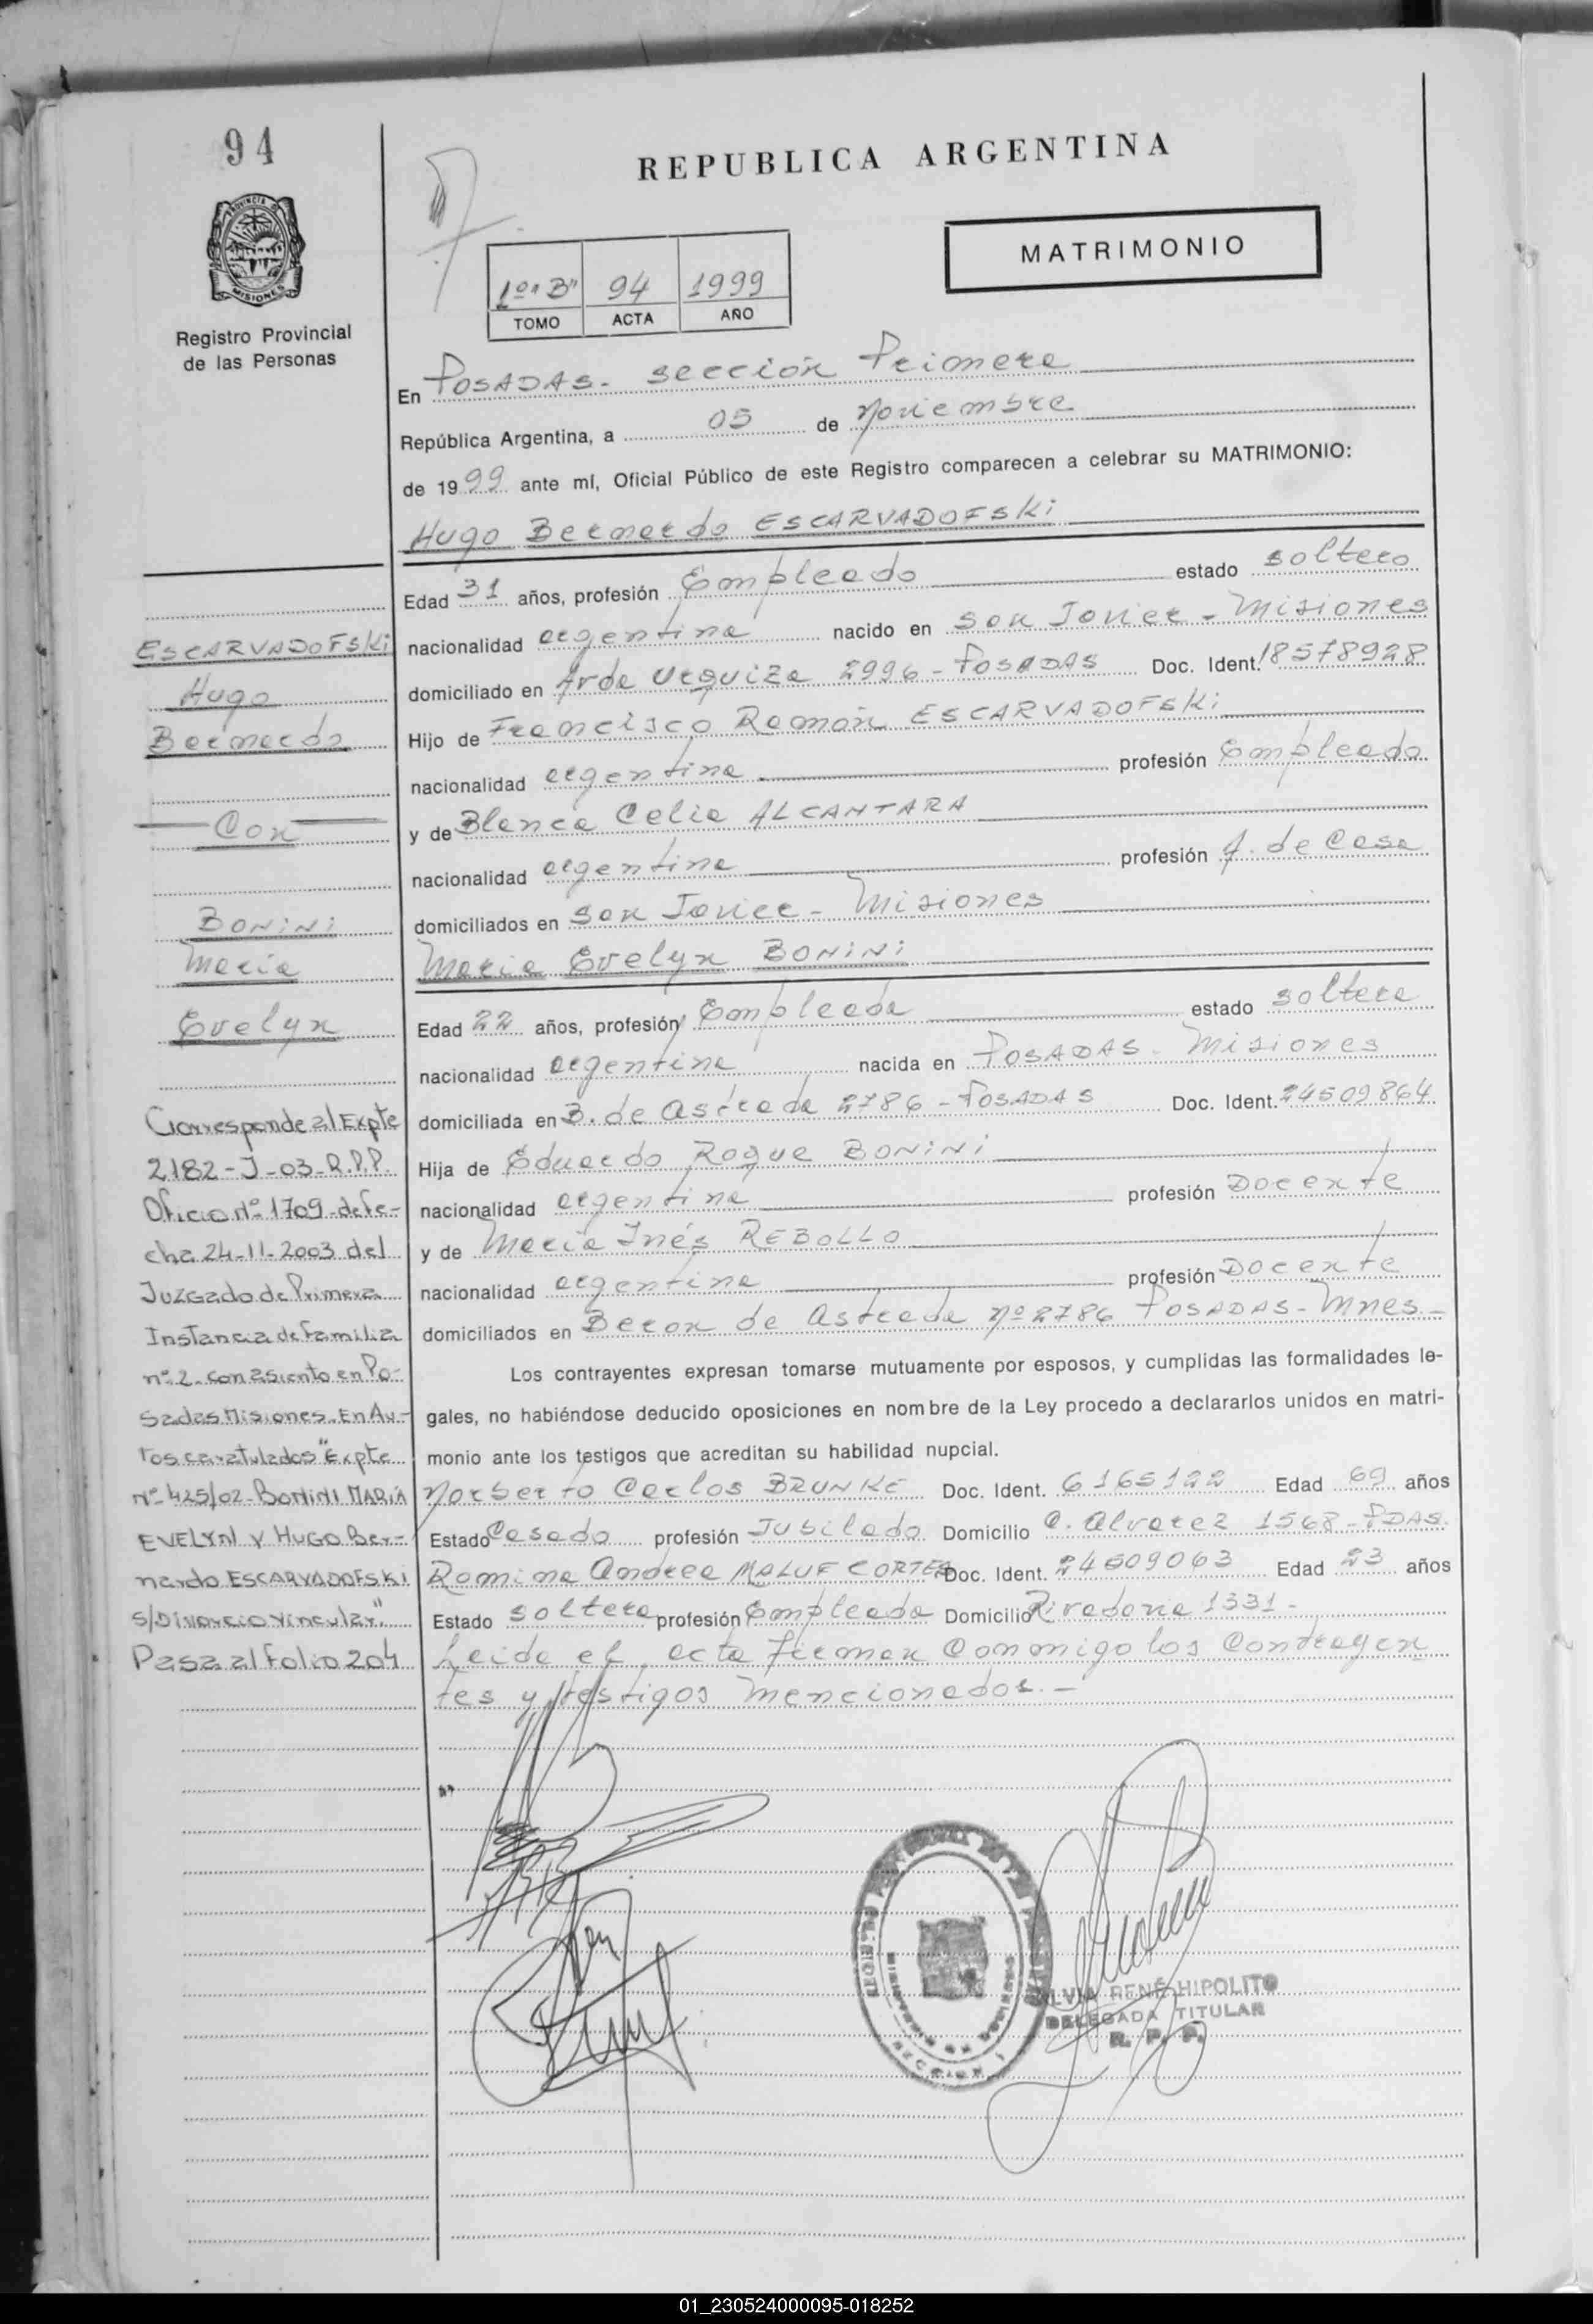 94
PROVINCIA DE
MISIONES
Registro Provincial
de las Personas
REPUBLICA ARGENTINA
MATRIMONIO
1º "B" 94 1999
TOMO ACTA AÑO
En POSADAS - sección Primera
República Argentina, a 05 de Noviembre
de 1999 ante mí, Oficial Público de este Registro comparecen a celebrar su MATRIMONIO:
Hugo Bernardo ESCARVADOFSKi
Edad 31 años, profesión Empleado estado soltero
nacionalidad argentina nacido en san Javier - Misiones
domiciliado en Avda Urquiza 2996 - POSADAS Doc. Ident. 18578928
Hijo de Francisco Ramón ESCARVADOFSKi
nacionalidad argentina profesión Empleado
y de Blanca Celia ALCANTARA
nacionalidad argentina profesión A. de Casa
domiciliados en san Javier - Misiones
Maria Evelyn BONiNi
Edad 22 años, profesión Empleada estado soltera
nacionalidad argentina nacida en POSADAS - Misiones
domiciliada en B. de Astrada 2786 - POSADAS Doc. Ident. 24509864
Hija de Eduardo Roque BONiNi
nacionalidad argentina profesión Docente
y de María Inés REBOLLO
nacionalidad argentina profesión Docente
domiciliados en Beron de Astrada Nº 2786 POSADAS - Mnes -
Los contrayentes expresan tomarse mutuamente por esposos, y cumplidas las formalidades le-
gales, no habiéndose deducido oposiciones en nombre de la Ley procedo a declararlos unidos en matri-
monio ante los testigos que acreditan su habilidad nupcial.
Norberto Carlos BRUNKE Doc. Ident. 6165122 Edad 69 años
Estado Casado profesión Jubilado Domicilio C. Alvarez 1568 - PDAS.
Romina Andrea MALUF CORTES Doc. Ident. 24509063 Edad 23 años
Estado soltera profesión Empleada Domicilio Rivadavia 1331 -
Leida el acta firman Conmigo los Contrayen
tes y testigos mencionados. -
ESCARVADOFSKi
Hugo
Bernardo
Con
BONiNi
Maria
Evelyn
Corresponde al Expte
2182-J-03-R.P.P.
Oficio Nº 1709 - de fe-
cha 24-11-2003 del
Juzgado de Primera
Instancia de Familia
nº 2 - con asiento en Po-
sadas Misiones - En Au-
tos caratulados "Expte
Nº 425/02 - BONINI MARÍA
EVELYN Y HUGO Ber-
nardo ESCARVADOFSKI
S/Divorcio vincular"
Pasa al Folio 204
RENÉ HIPOLITO
DELEGADA TITULAR
R. P. P.
01_230524000095-018252